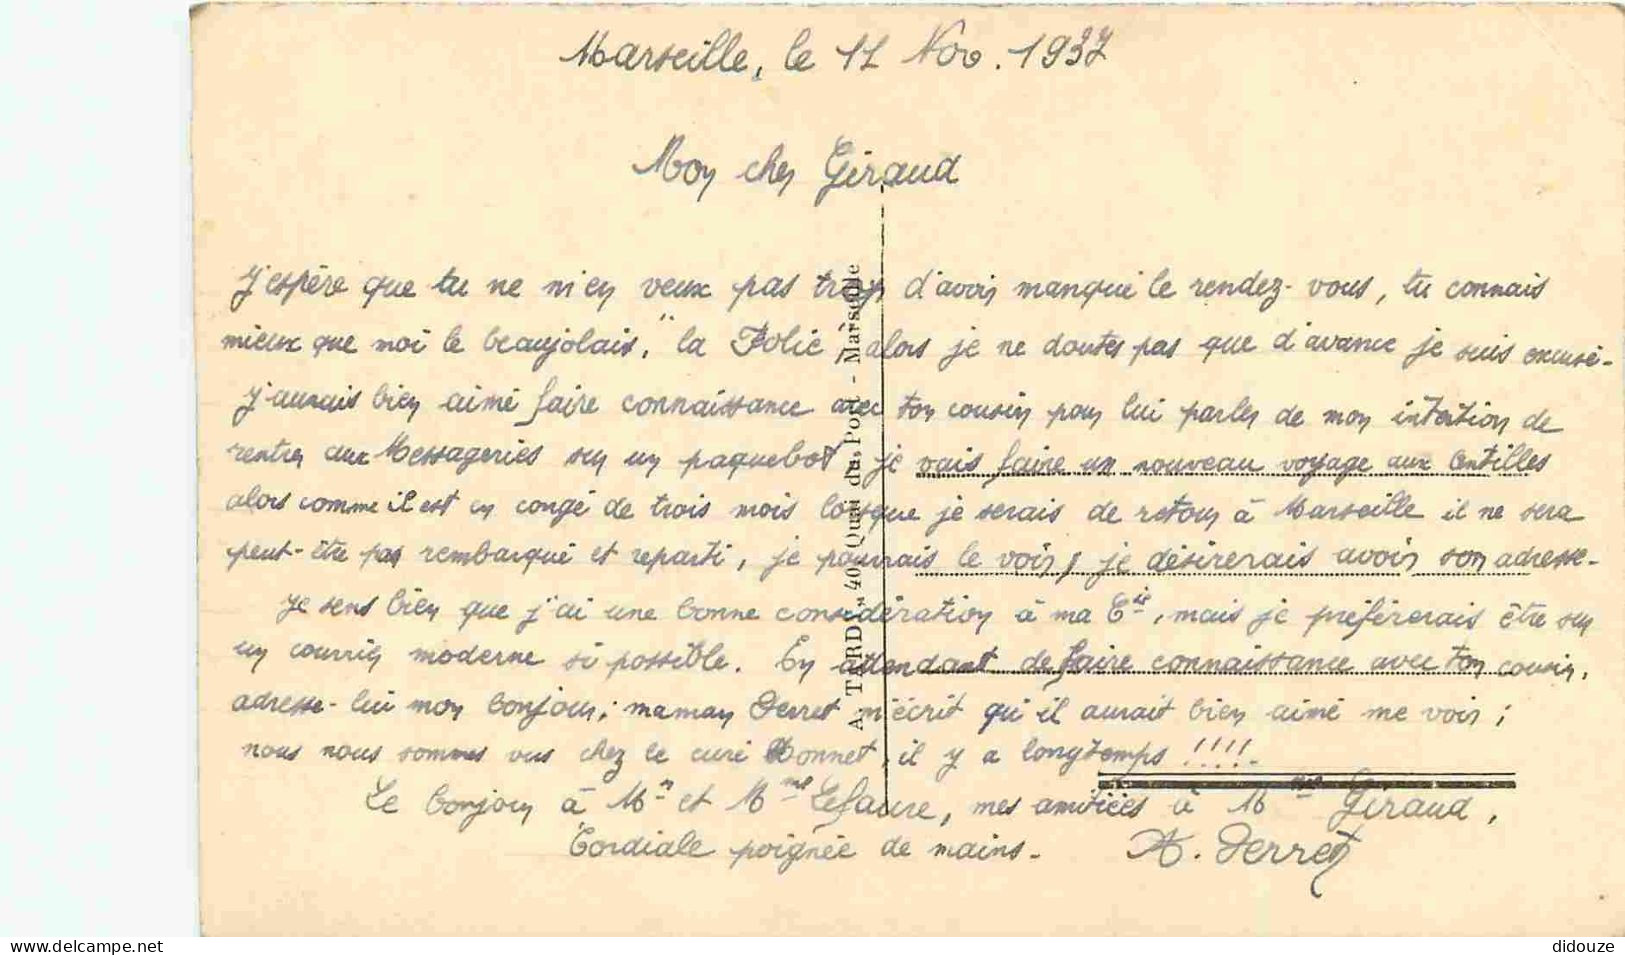 Marseille, le 11 Nov. 1937
Mon cher Giraud
J'espère que tu ne m'en veux pas trop d'avoir manqué le rendez-vous, tu connais
mieux que moi le beaujolais, "la Folie", alors je ne doutes pas que d'avance je suis excusé-
J'aurais bien aimé faire connaissance avec ton cousin pour lui parler de mon intention de
rentrer aux Messageries sur un paquebot, je vais faire un nouveau voyage aux Antilles
alors comme il est en congé de trois mois lorsque je serais de retour à Marseille il ne sera
peut-être pas rembarqué et reparti, je pourrais le voir, je désirerais avoir son adresse-
Je sens bien que j'ai une bonne considération à ma Cie, mais je préfèrerais être sur
un courrier moderne si possible. En attendant de faire connaissance avec ton cousin,
adresse-lui mon bonjour; maman Perret m'écrit qu'il aurait bien aimé me voir;
nous nous sommes vus chez le curé Bonnet, il y a longtemps !!!!-
Le bonjour à Mr et Mme Lefaure, mes amitiées à Mme Giraud,
Cordiale poignée de mains- A. Perret
A. TARDY, 40, Quai du Port - Marseille
www.delcampe.net
didouze